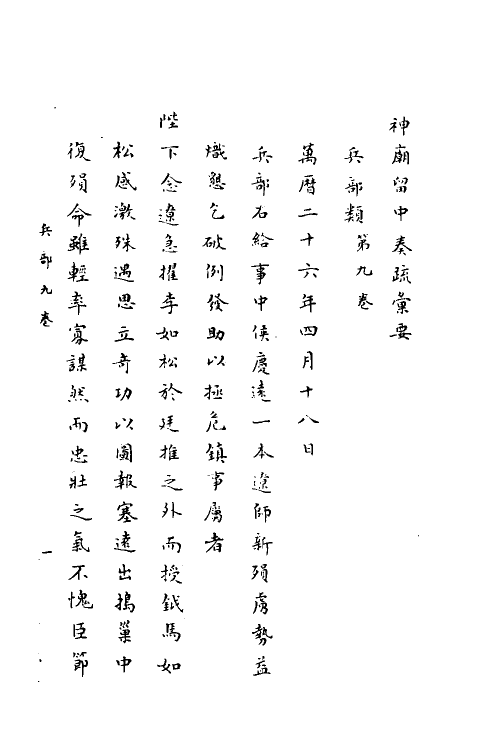 神廟留中奏疏彙要
兵部類第九卷
萬曆二十六年四月十八日
兵部右給事中侯慶遠一本遼師新殞虜勢益
熾懇乞破例發助以拯危鎮事屬者
陛下念遼急擢李如松於廷推之外而授鉞馬如
松感激殊遇思立奇功以圖報塞遠出搗巢中
復殞命雖輕率寡謀然而忠壯之氣不愧臣節
兵部九卷
一